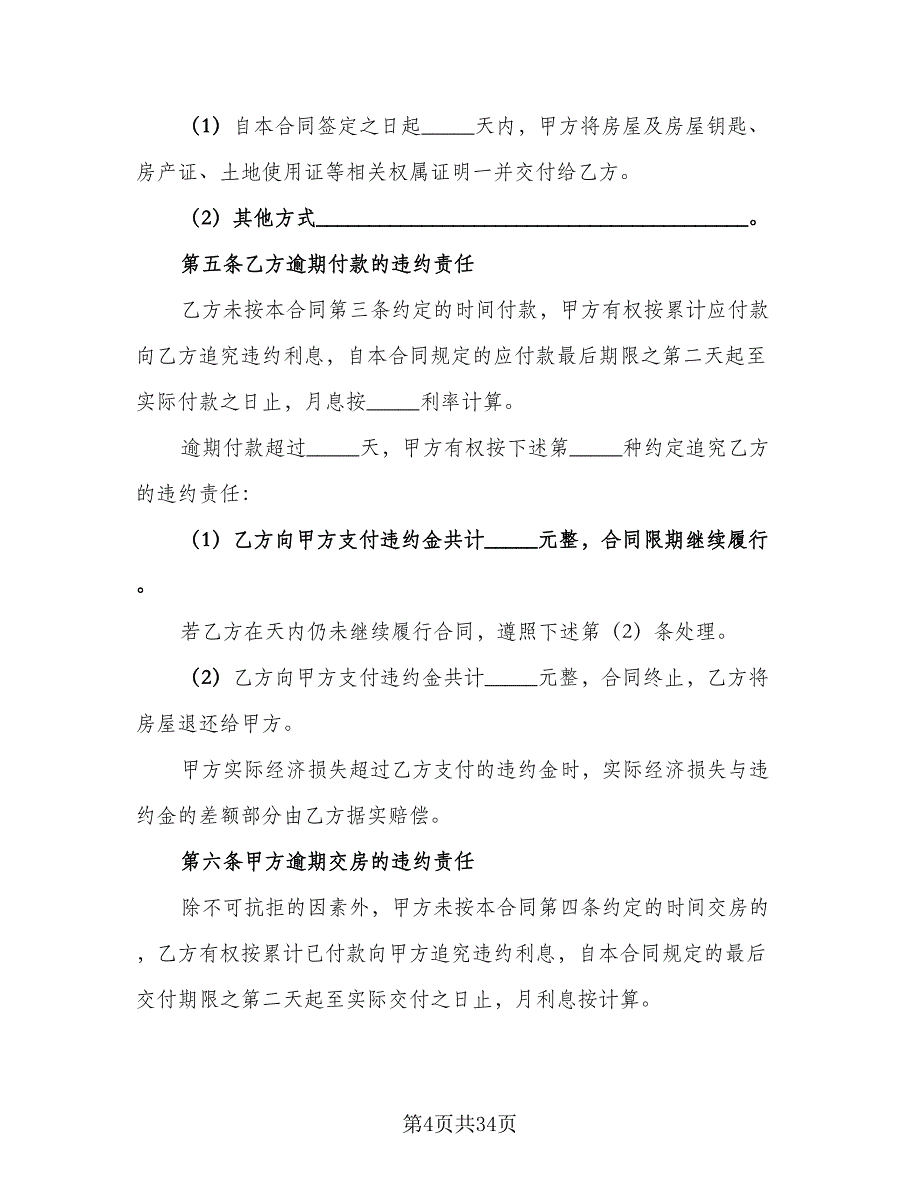 （1）自本合同签定之日起_____天内，甲方将房屋及房屋钥匙、
房产证、土地使用证等相关权属证明一并交付给乙方。
（2）其他方式_________________________________________。
第五条乙方逾期付款的违约责任
乙方未按本合同第三条约定的时间付款，甲方有权按累计应付款
向乙方追究违约利息，自本合同规定的应付款最后期限之第二天起至
实际付款之日止，月息按_____利率计算。
逾期付款超过_____天，甲方有权按下述第_____种约定追究乙方
的违约责任：
（1）乙方向甲方支付违约金共计_____元整，合同限期继续履行
。
若乙方在天内仍未继续履行合同，遵照下述第（2）条处理。
（2）乙方向甲方支付违约金共计_____元整，合同终止，乙方将
房屋退还给甲方。
甲方实际经济损失超过乙方支付的违约金时，实际经济损失与违
约金的差额部分由乙方据实赔偿。
第六条甲方逾期交房的违约责任
除不可抗拒的因素外，甲方未按本合同第四条约定的时间交房的
，乙方有权按累计已付款向甲方追究违约利息，自本合同规定的最后
交付期限之第二天起至实际交付之日止，月利息按计算。
第4页共34页